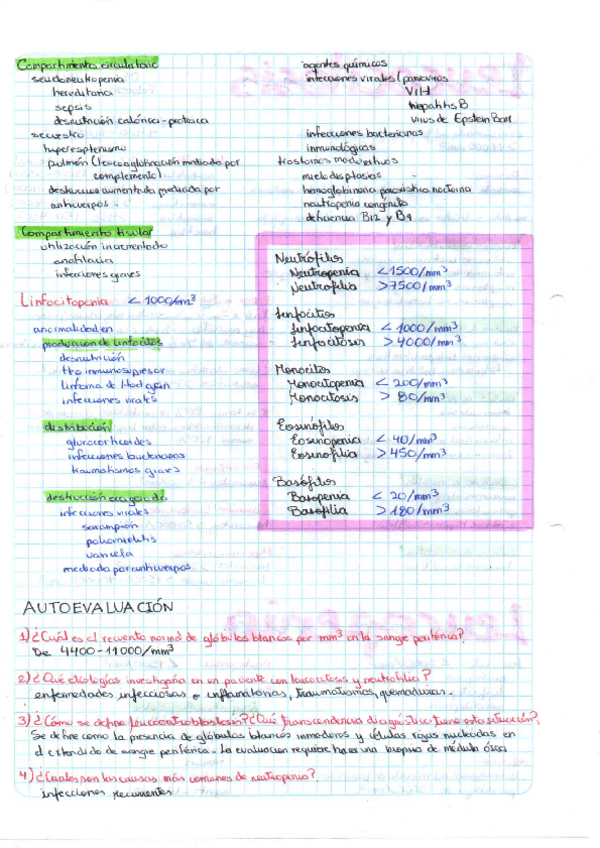 Compartimiento circulatorio
seudoneutropenia
hereditaria
sepsis
desnutrición calórica-proteica
secuestro
hiperesplenismo
pulmón (leucoaglutinación mediada por
complemento)
destrucción aumentada mediada por
anticuerpos.
Compartimiento tisular
utilización incrementada
anafilaxia
infecciones graves
Linfocitopenia < 1000/m³
anormalidad en
producción de linfocitos
desnutrición
tto inmunosupresor
linfoma de Hodgkin
infecciones virales
distribución
glucocorticoides
infecciones bacterianas
traumatismos graves
destrucción exagerada
infecciones virales
sarampión
poliomielitis
varicela
mediada por anticuerpos
agentes químicos
infecciones virales (parvovirus
VIH
hepatitis B
virus de Epstein Barr
infecciones bacterianas
inmunológicas
trastornos madurativos
mielodisplasias
hemoglobinuria paroxística nocturna
neutropenia congénita
deficiencia B12 y B9
Neutrófilos
Neutropenia <1500/mm³
Neutrofilia >7500/mm³
Linfocitos
Linfocitopenia < 1000/mm³
Linfocitosis > 4000/mm³
Monocitos
Monocitopenia < 200/mm³
Monocitosis > 80/mm³
Eosinófilos
Eosinopenia < 40/mm³
Eosinofilia > 450/mm³
Basófilos
Basopenia < 20/mm³
Basofilia > 180/mm³
AUTOEVALUACIÓN
1) ¿Cuál es el recuento normal de glóbulos blancos por mm³ en la sangre periférica?
De 4400-11000/mm³
2) ¿Qué etiologías investigaría en un paciente con leucocitosis y neutrofilia?
enfermedades infecciosas e inflamatorias, traumatismos, quemaduras.
3) ¿Cómo se define leucoeritroblastosis? ¿Qué transcendencia diagnóstica tiene esta situación?
Se define como la presencia de glóbulos blancos inmaduros y células rojas nucleadas en
el extendido de sangre periférica. La evaluación requiere hacer una biopsia de médula ósea
4) ¿Cuáles son las causas más comunes de neutropenia?
infecciones recurrentes